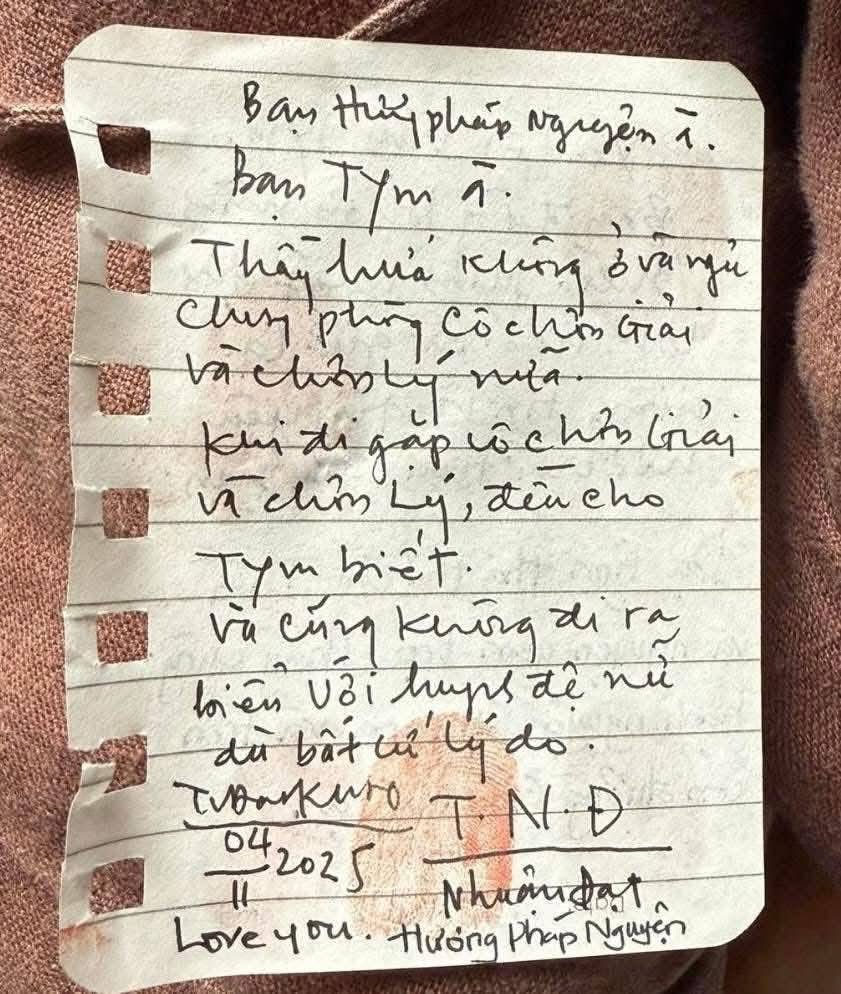 Bạn Hương pháp Nguyện à.
Bạn Tym à.
Thầy hứa không ở và ngủ
chung phòng cô chơn Giải
và chơn Lý nữa.
Khi đi gặp cô chơn Giải
và chơn Lý, đều cho
Tym biết.
Và cũng không đi ra
biển với huynh đệ nữ
dù bất cứ lý do.
04
11 2025
T.N.Đ
Nhuận Đạt
Love you. Hương Pháp Nguyện